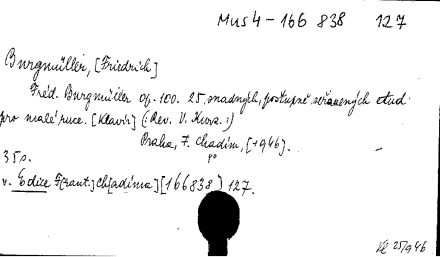 Mus 4 - 166 838 127
Burgmüller, [Friedrich]
Fréd. Burgmüller op. 100. 25 snadných, postupně seřazených etud
pro malé ruce. [Klavír] (: Rev. V. Kurz. :)
Praha, F. Chadim, [1946].
35 s.
v. Edice F[rant.] Ch[adima] [166838] 127.
25/9 46